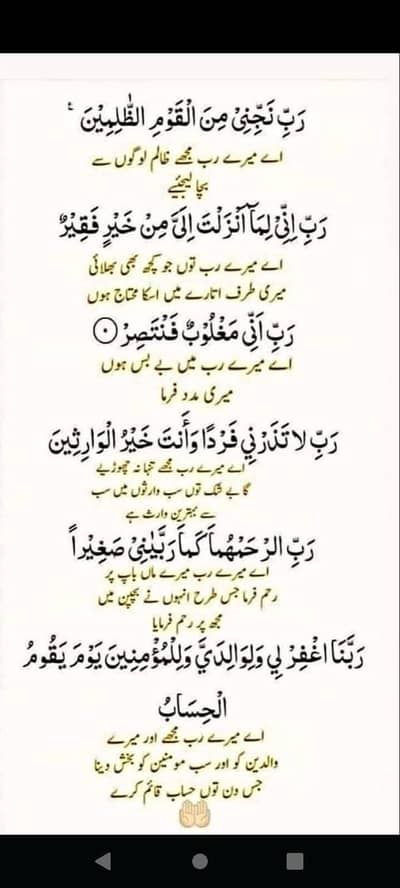 رَبِّ نَجِّنِیْ مِنَ الْقَوْمِ الظّٰلِمِیْنَ ۠
اے میرے رب مجھے ظالم لوگوں سے
بچا لیجئیے
رَبِّ اِنِّیْ لِمَاۤ اَنْزَلْتَ اِلَیَّ مِنْ خَیْرٍ فَقِیْرٌ
اے میرے رب توں جو کچھ بھی بھلائی
میری طرف اتارے میں اسکا محتاج ہوں
رَبِّ اَنِّیْ مَغْلُوْبٌ فَنْتَصِرْ ۝
اے میرے رب میں بے بس ہوں
میری مدد فرما
رَبِّ لَا تَذَرْنِي فَرْدًا وَأَنتَ خَيْرُ الْوَارِثِينَ
اے میرے رب مجھے تنہا نہ چھوڑیے
گا بے شک توں سب وارثوں میں سب
سے بہترین وارث ہے
رَبِّ الرْحَمْهُمَا كَمَا رَبَّيٰنِیْ صَغِیْراً
اے میرے رب میرے ماں باپ پر
رحم فرما جس طرح انہوں نے بچپن میں
مجھ پر رحم فرمایا
رَبَّنَا اغْفِرْ لِي وَلِوَالِدَيَّ وَلِلْمُؤْمِنِينَ يَوْمَ يَقُومُ
الْحِسَابُ
اے میرے رب مجھے اور میرے
والدین کو اور سب مومنین کو بخش دینا
جس دن توں حساب قائم کرے